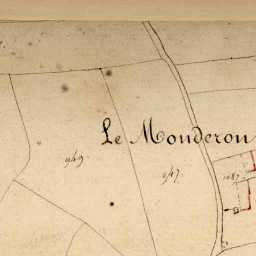 Le Monderon
949.
947.
1087